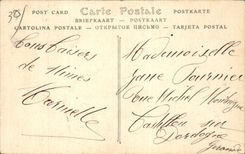 POST CARD
Carte Postale
POSTKARTE
BRIEFKAART
POSTKARTE
CARTOLINA POSTALE
ОТКРЫТОЕ ПИСЬМО
TARJETA POSTAL
Bons baisers
de Nimes
Mademoiselle
Jane Fournier
Rue Michel Montaigne
Castillon sur
Dordogne
Gironde